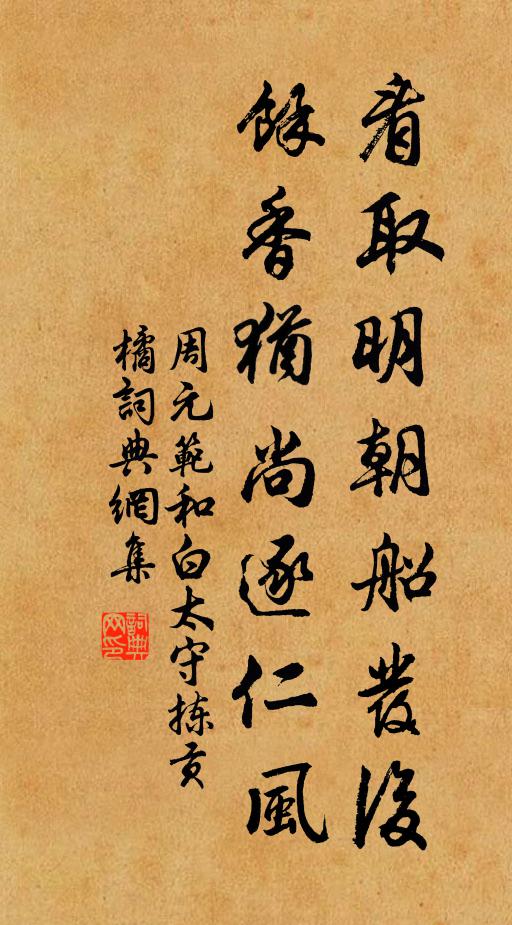 看取明朝船發後
餘香猶尚逐仁風
周元範和白太守拣貢
橘詞典網集
詞典网印